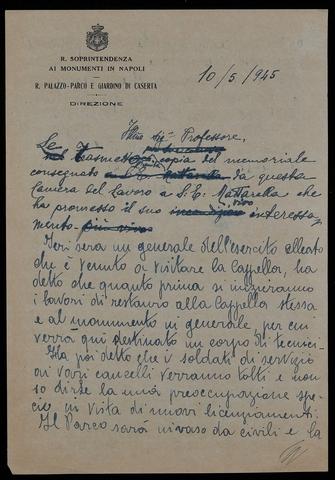 R. SOPRINTENDENZA
AI MONUMENTI IN NAPOLI
R. PALAZZO-PARCO E GIARDINO DI CASERTA
DIREZIONE
10/5/945
Ill.mo Sig.r Professore,
Le trasmetto copia del memoriale
consegnato da questa
Camera del Lavoro a S.E. Mattarella che
ha promesso il suo vivo interessa
mento.
Ieri sera un generale dell'esercito alleato
che è venuto a visitare la Cappella, ha
detto che quanto prima si inizieranno
i lavori di restauro alla Cappella stessa
e al monumento in generale, per cui
verrà qui destinato un corpo di tecnici.
Ha poi detto che i soldati di servizio
ai vari cancelli verranno tolti e non
so dirle la mia preoccupazione spe
cie in vista di nuovi licenziamenti.
Il Parco sarà invaso da civili e la